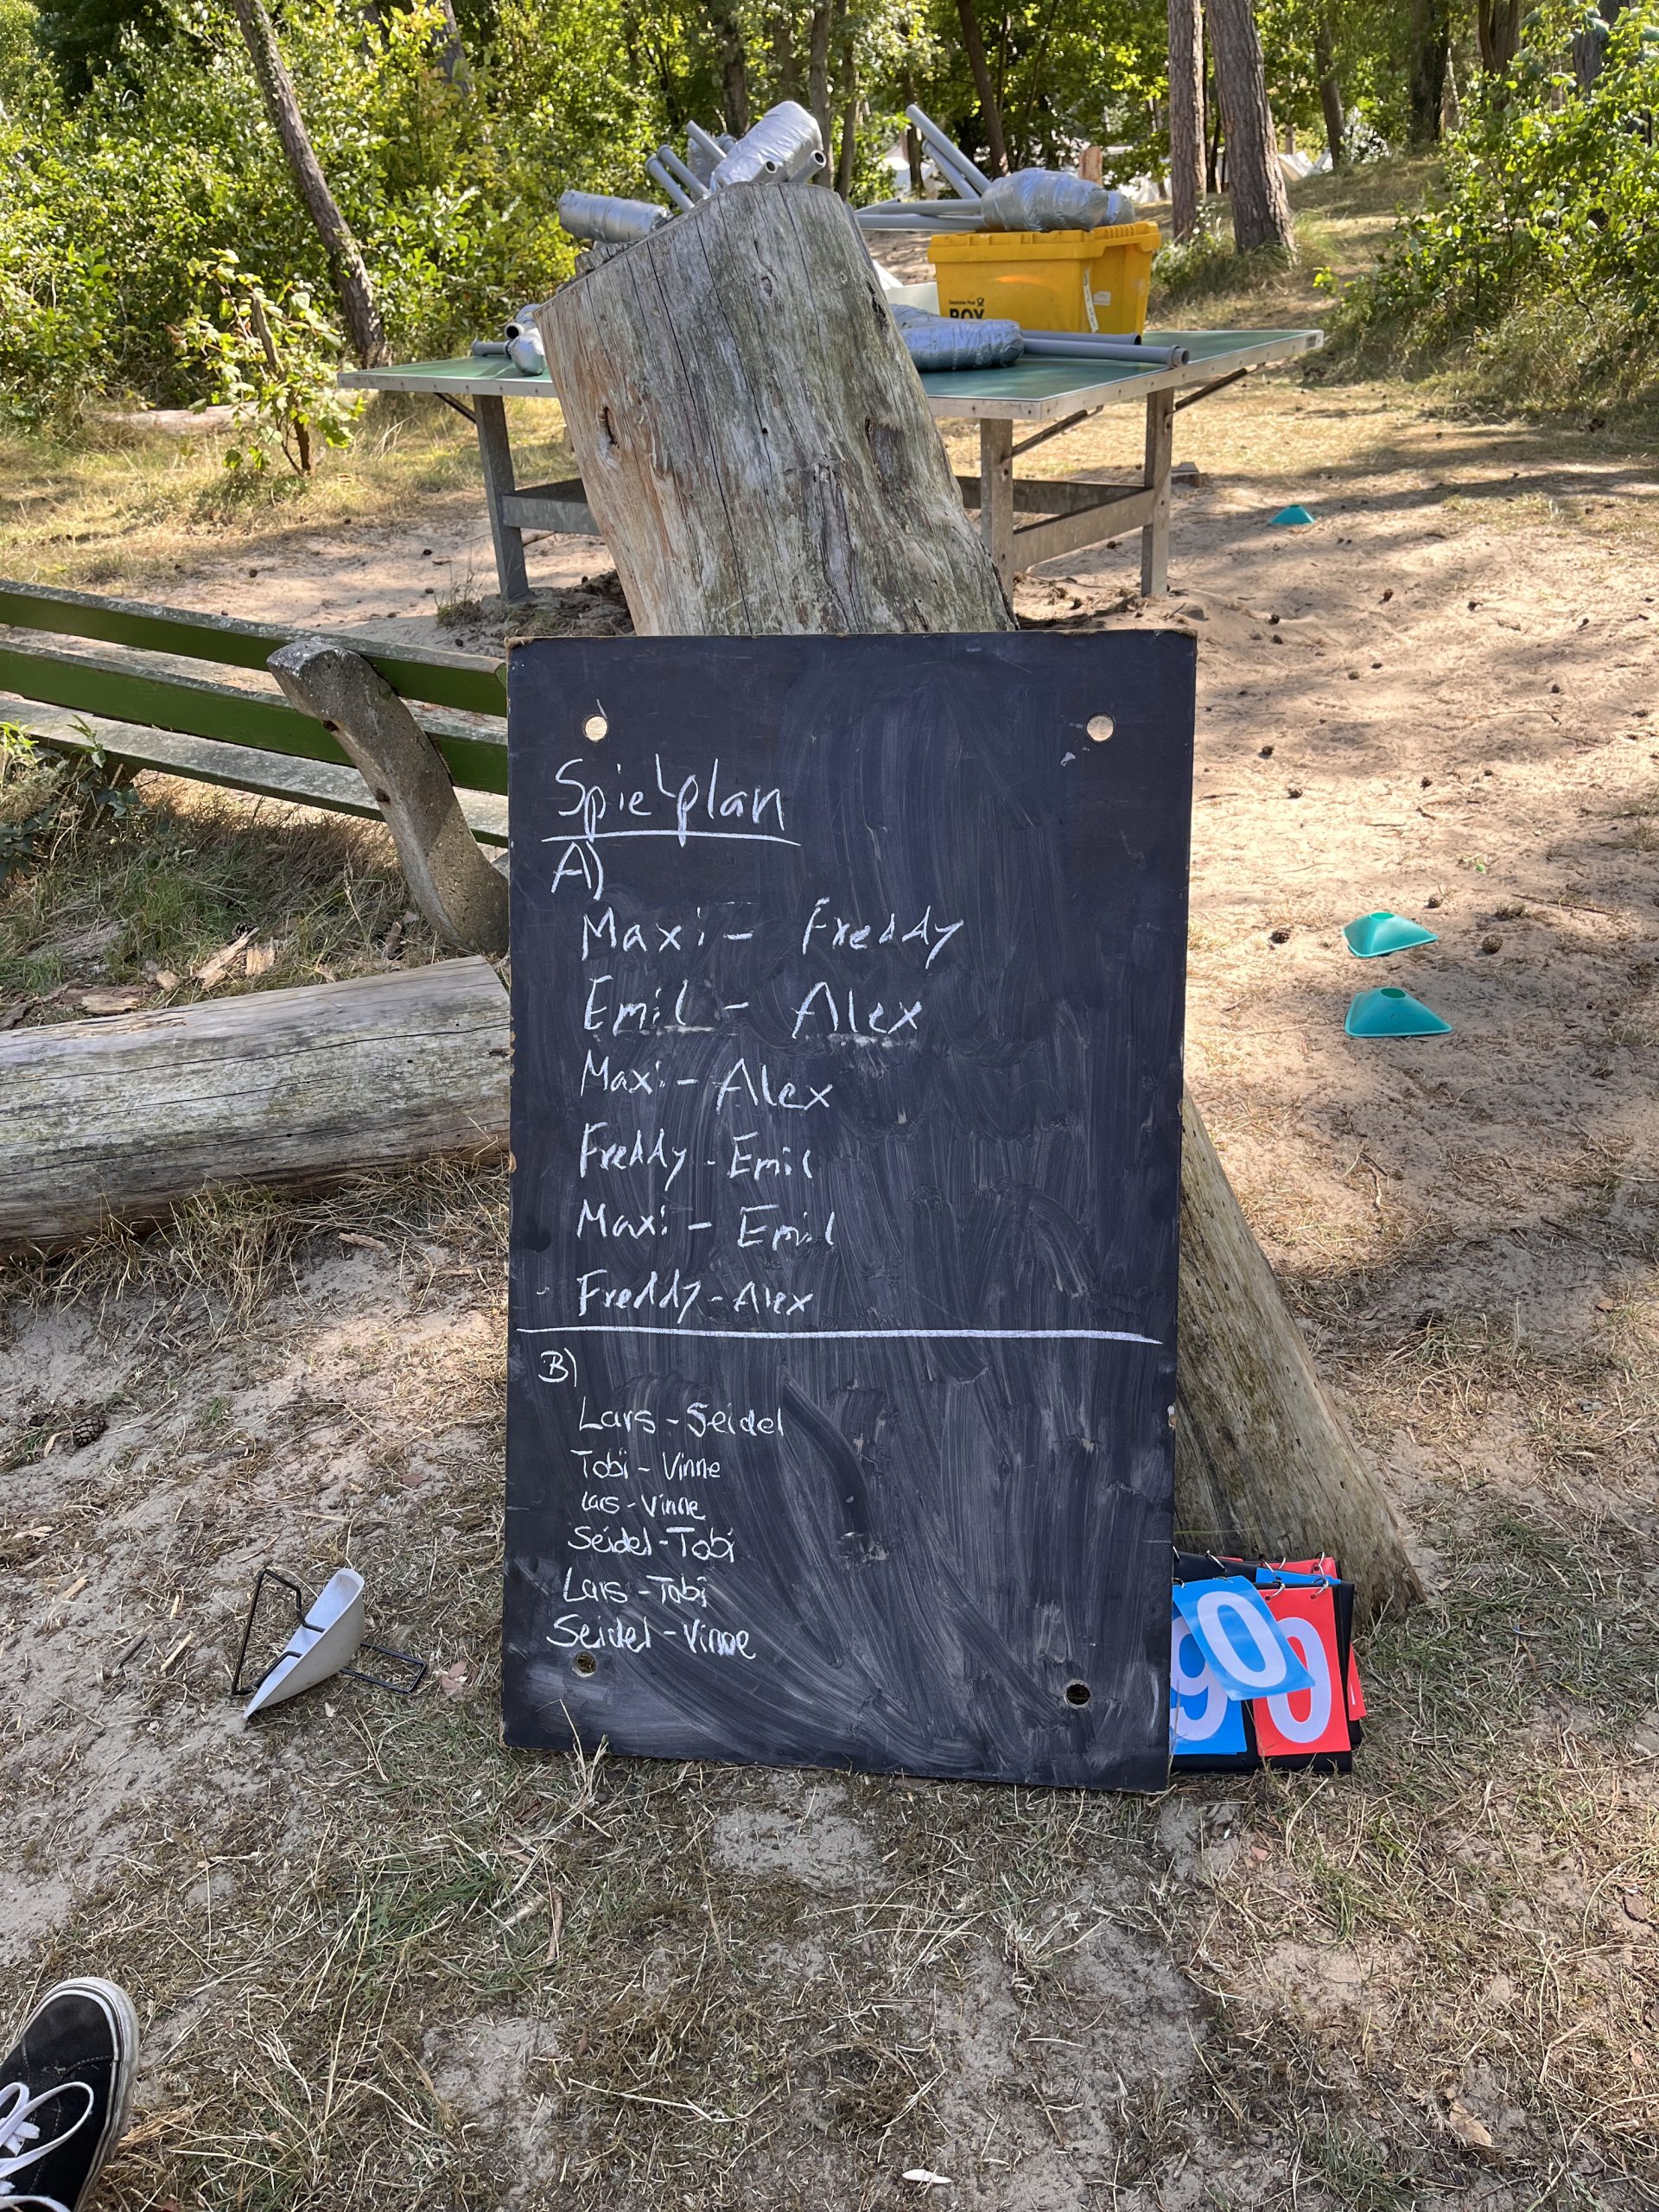 Deutsche Post
BOX
Spielplan
A)
Maxi - Freddy
Emil - Alex
Maxi - Alex
Freddy - Emil
Maxi - Emil
- Freddy - Alex
B)
Lars - Seidel
Tobi - Vinne
Lars - Vinne
Seidel - Tobi
Lars - Tobi
Seidel - Vinne
0
9 0